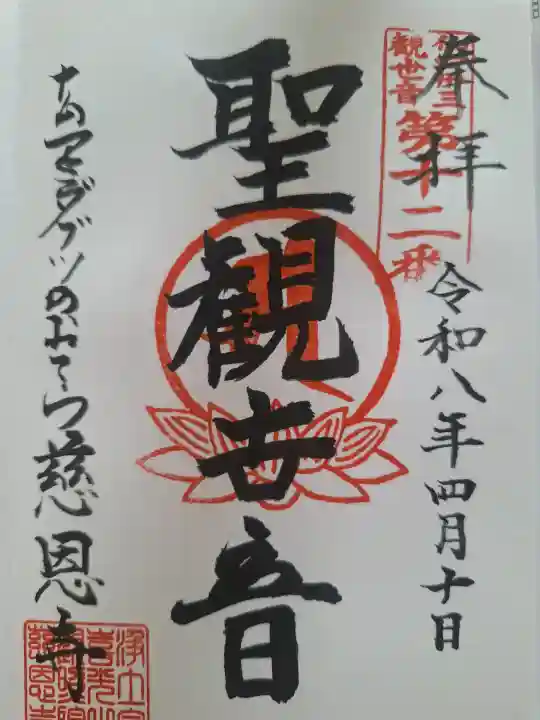 奉拝
観世音
第十二番
令和八年四月十日
聖観世音
なむアミダブツのおてら慈恩寺
浄土宗
慈恩寺